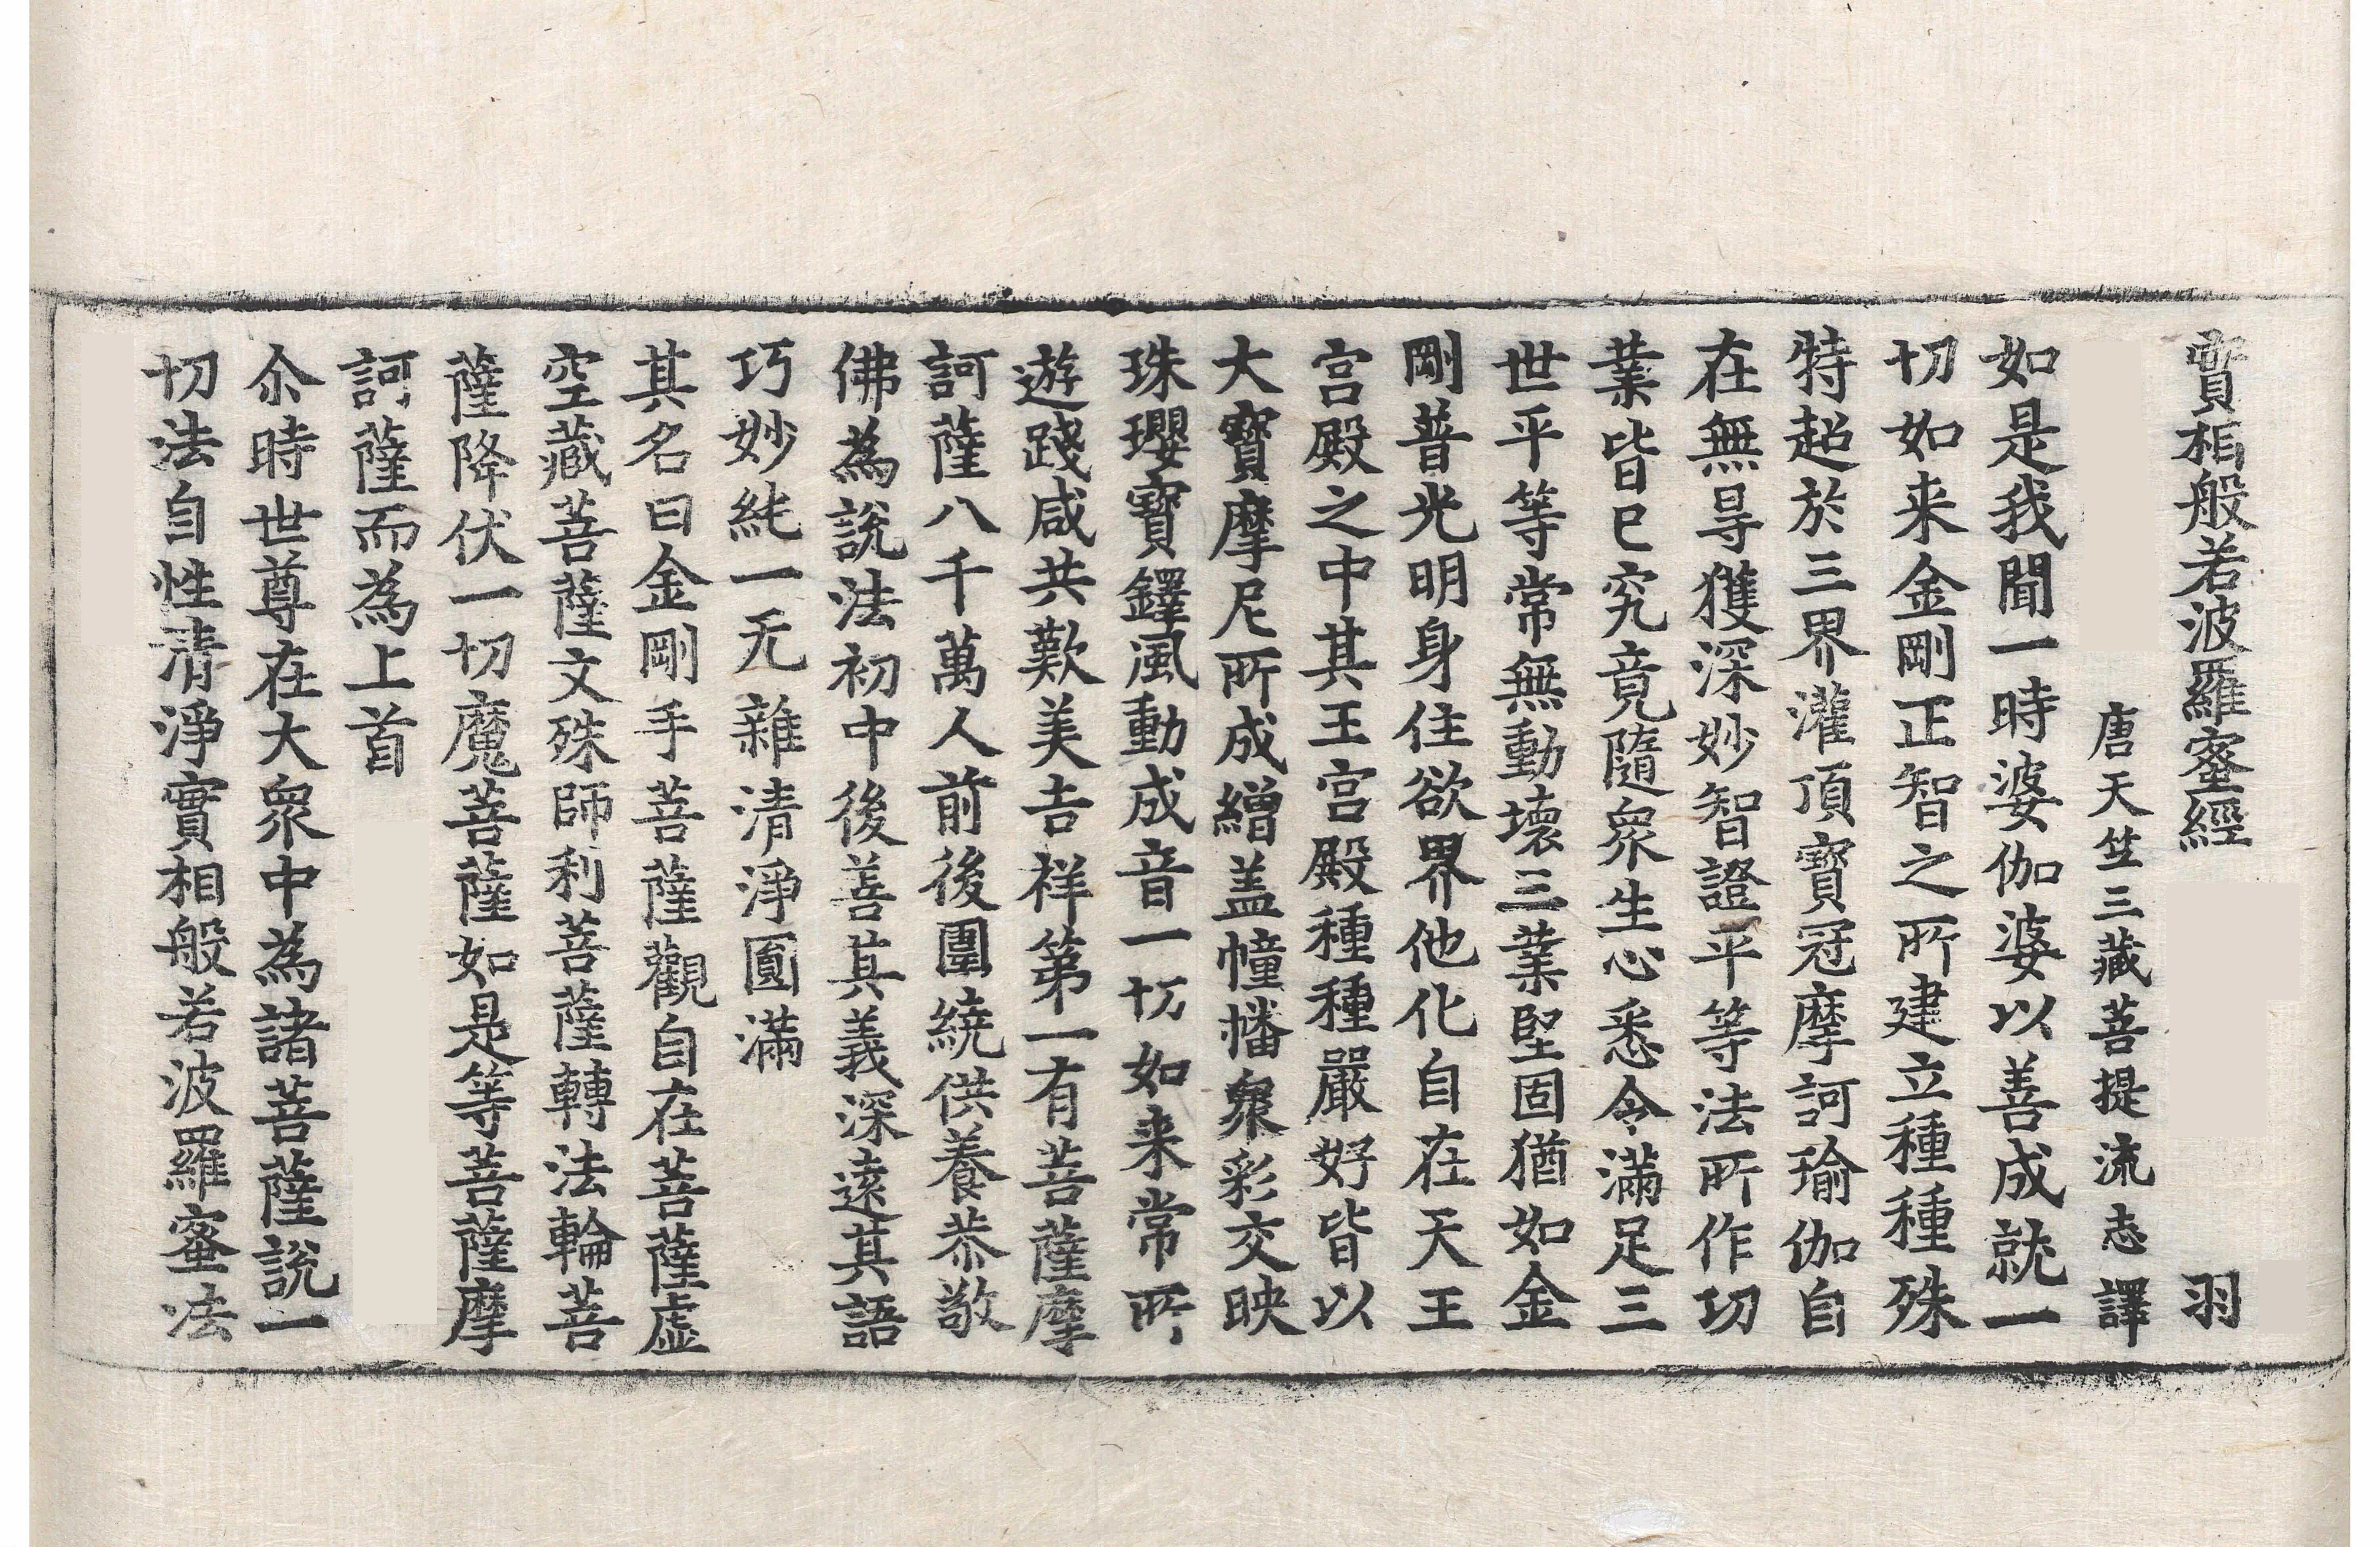 實相般若波羅蜜經 羽
唐天竺三藏菩提流志譯
如是我聞一時婆伽婆以善成就一
切如来金剛正智之所建立種種殊
特超於三界灌頂寳冠摩訶瑜伽自
在無㝵獲深妙智證平等法所作切
業皆已究竟隨衆生心悉令滿足三
世平等常無動壞三業堅固猶如金
剛普光明身住欲界他化自在天王
宮殿之中其王宮殿種種嚴好皆以
大寳摩尼所成繒盖幢播衆彩交映
珠瓔寳鐸風動成音一切如来常所
遊踐咸共歎美吉祥第一有菩薩摩
訶薩八千萬人前後圍繞供養恭敬
佛為說法初中後善其義深遠其語
巧妙純一无雜清淨圓滿
其名曰金剛手菩薩觀自在菩薩虛
空藏菩薩文殊師利菩薩轉法輪菩
薩降伏一切魔菩薩如是等菩薩摩
訶薩而為上首
尒時世尊在大衆中為諸菩薩說一
切法自性清淨實相般若波羅蜜法